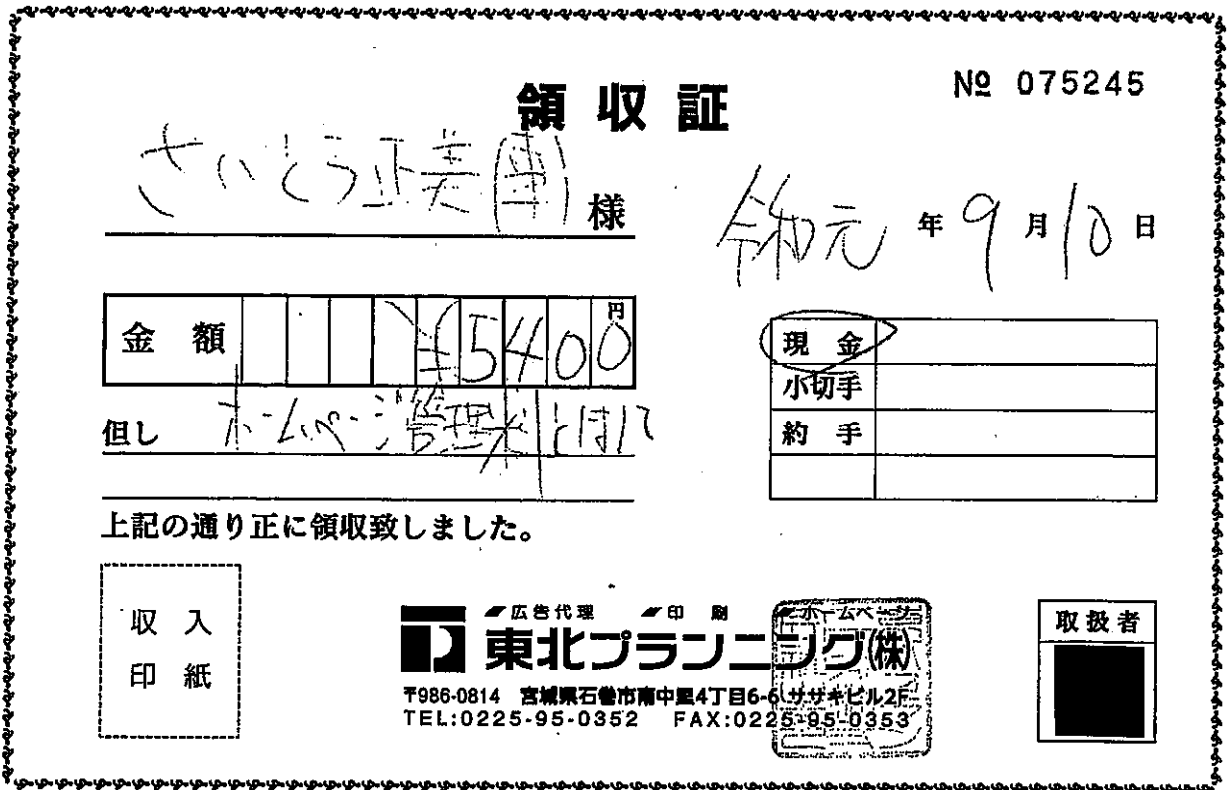 領収証
№ 075245
さいとう正美 様
令和元年9月10日
金額 ¥5400円
但し ホームページ管理料として
現金
小切手
約手
上記の通り正に領収致しました。
収入
印紙
広告代理 印刷 ホームページ
東北プランニング(株)
〒986-0814 宮城県石巻市南中里4丁目6-6 ササキビル2F
TEL:0225-95-0352 FAX:0225-95-0353
取扱者